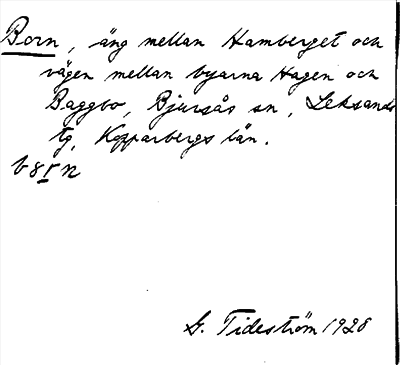 Born, äng mellan Hamberget och
vägen mellan byarna Hagen och
Baggbo, Bjursås sn, Leksands
tg, Kopparbergs län.
G. Tideström 1928